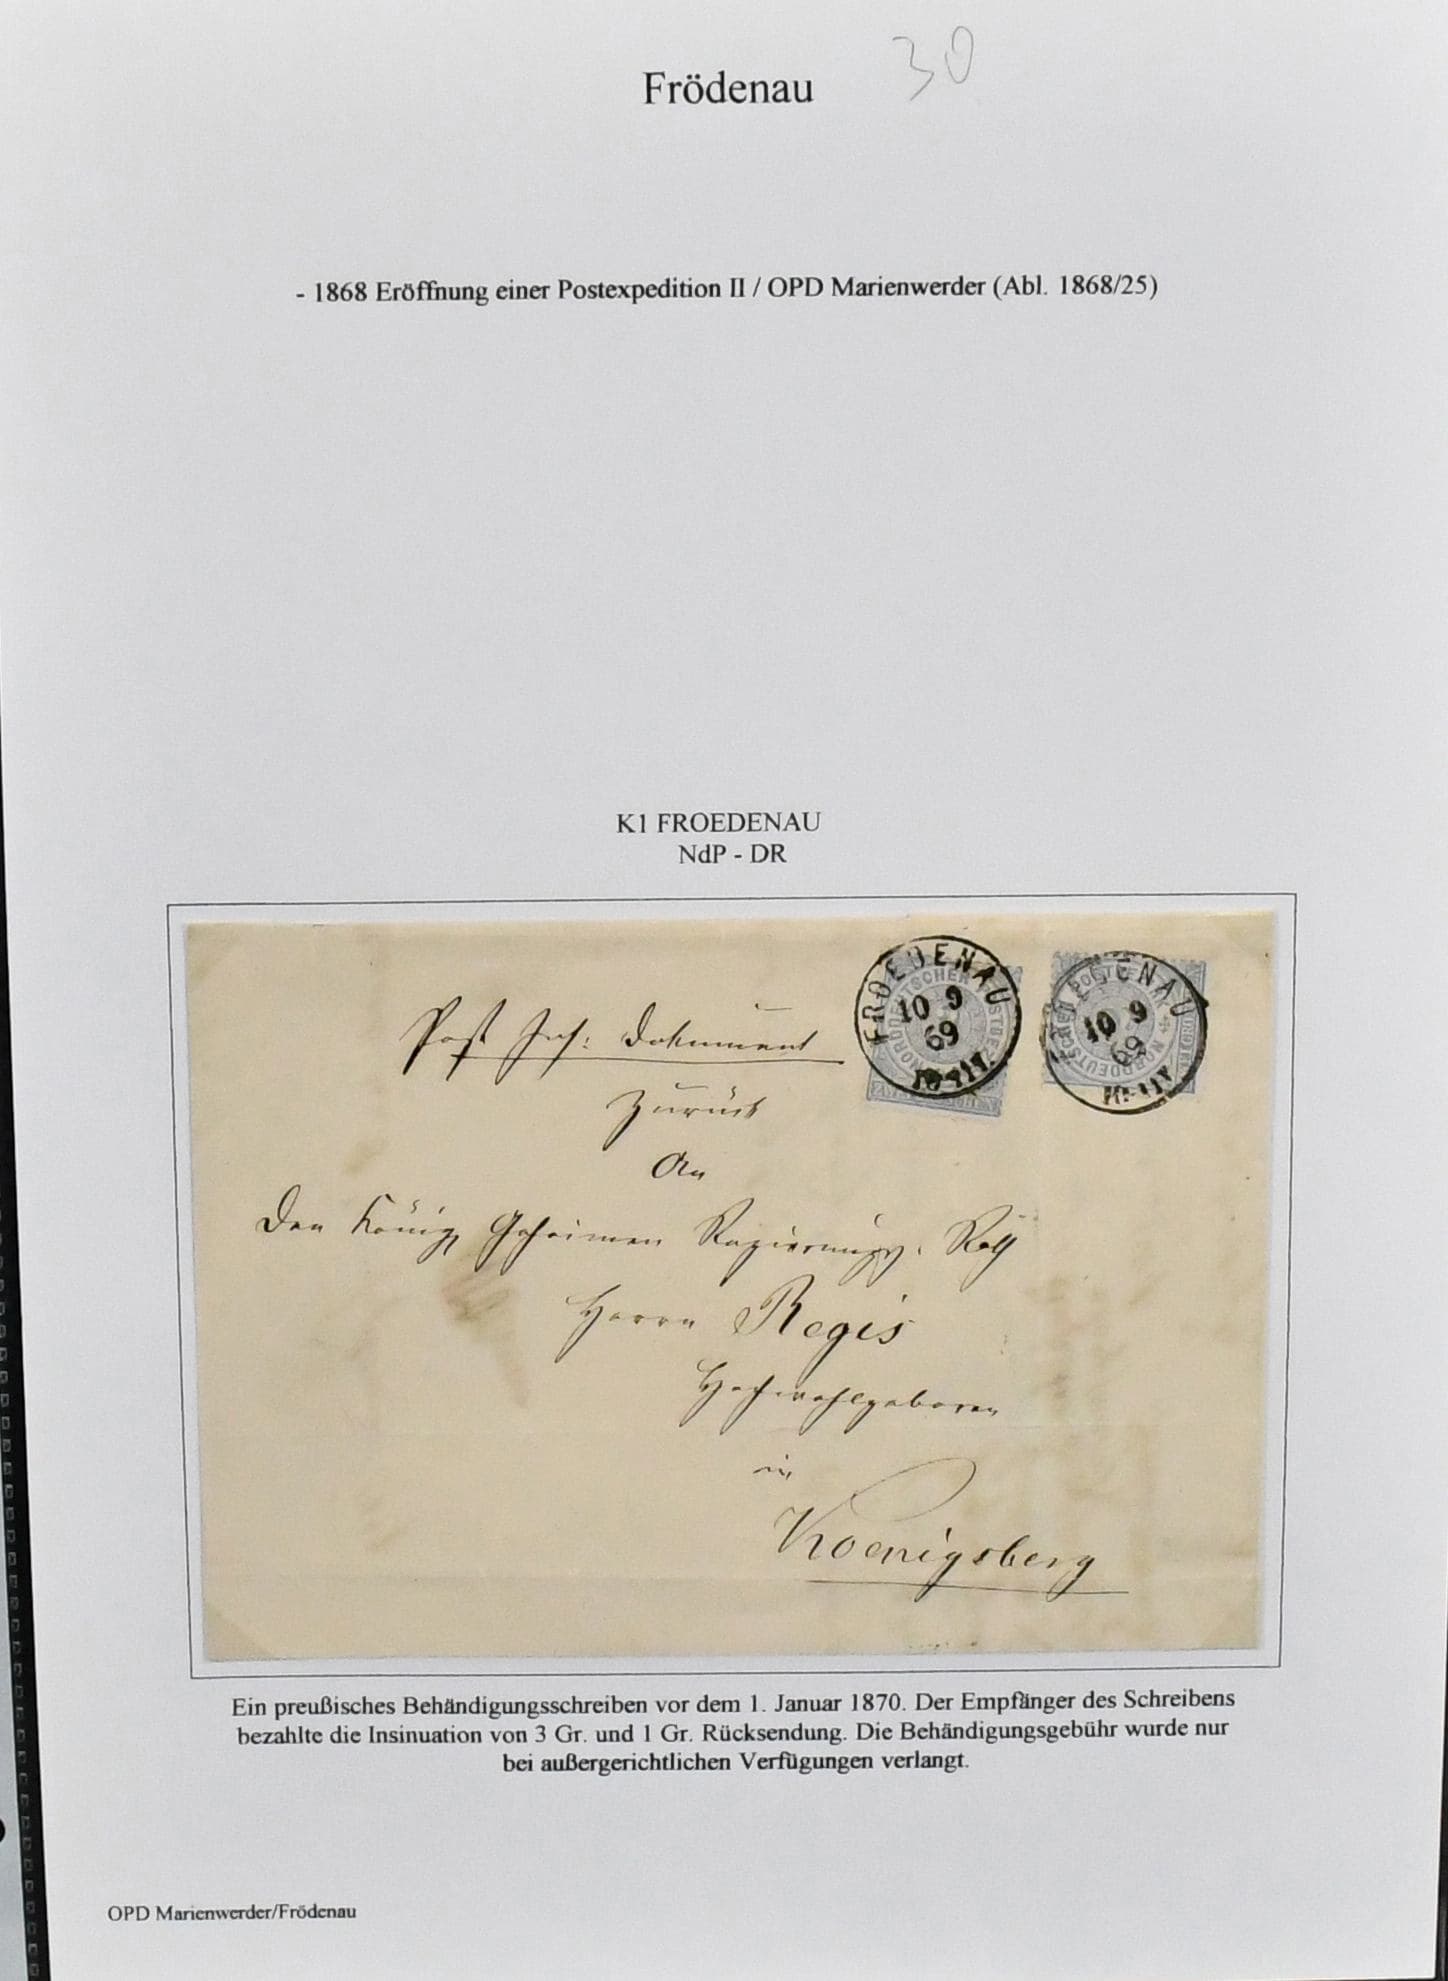 Frödenau 30
- 1868 Eröffnung einer Postexpedition II / OPD Marienwerder (Abl. 1868/25)
K1 FROEDENAU
NdP - DR
FROEDENAU
10 9
69
NORDDEUTSCHER POSTBEZIRK
10 9
69
NORDDEUTSCHER POSTBEZIRK
Post Ins: Dokument
Zurück
An
Den Königl Geheimen Regierungs. Rath
Herrn Regis
Hochwohlgeboren
in
Koenigsberg
Ein preußisches Behändigungsschreiben vor dem 1. Januar 1870. Der Empfänger des Schreibens
bezahlte die Insinuation von 3 Gr. und 1 Gr. Rücksendung. Die Behändigungsgebühr wurde nur
bei außergerichtlichen Verfügungen verlangt.
OPD Marienwerder/Frödenau